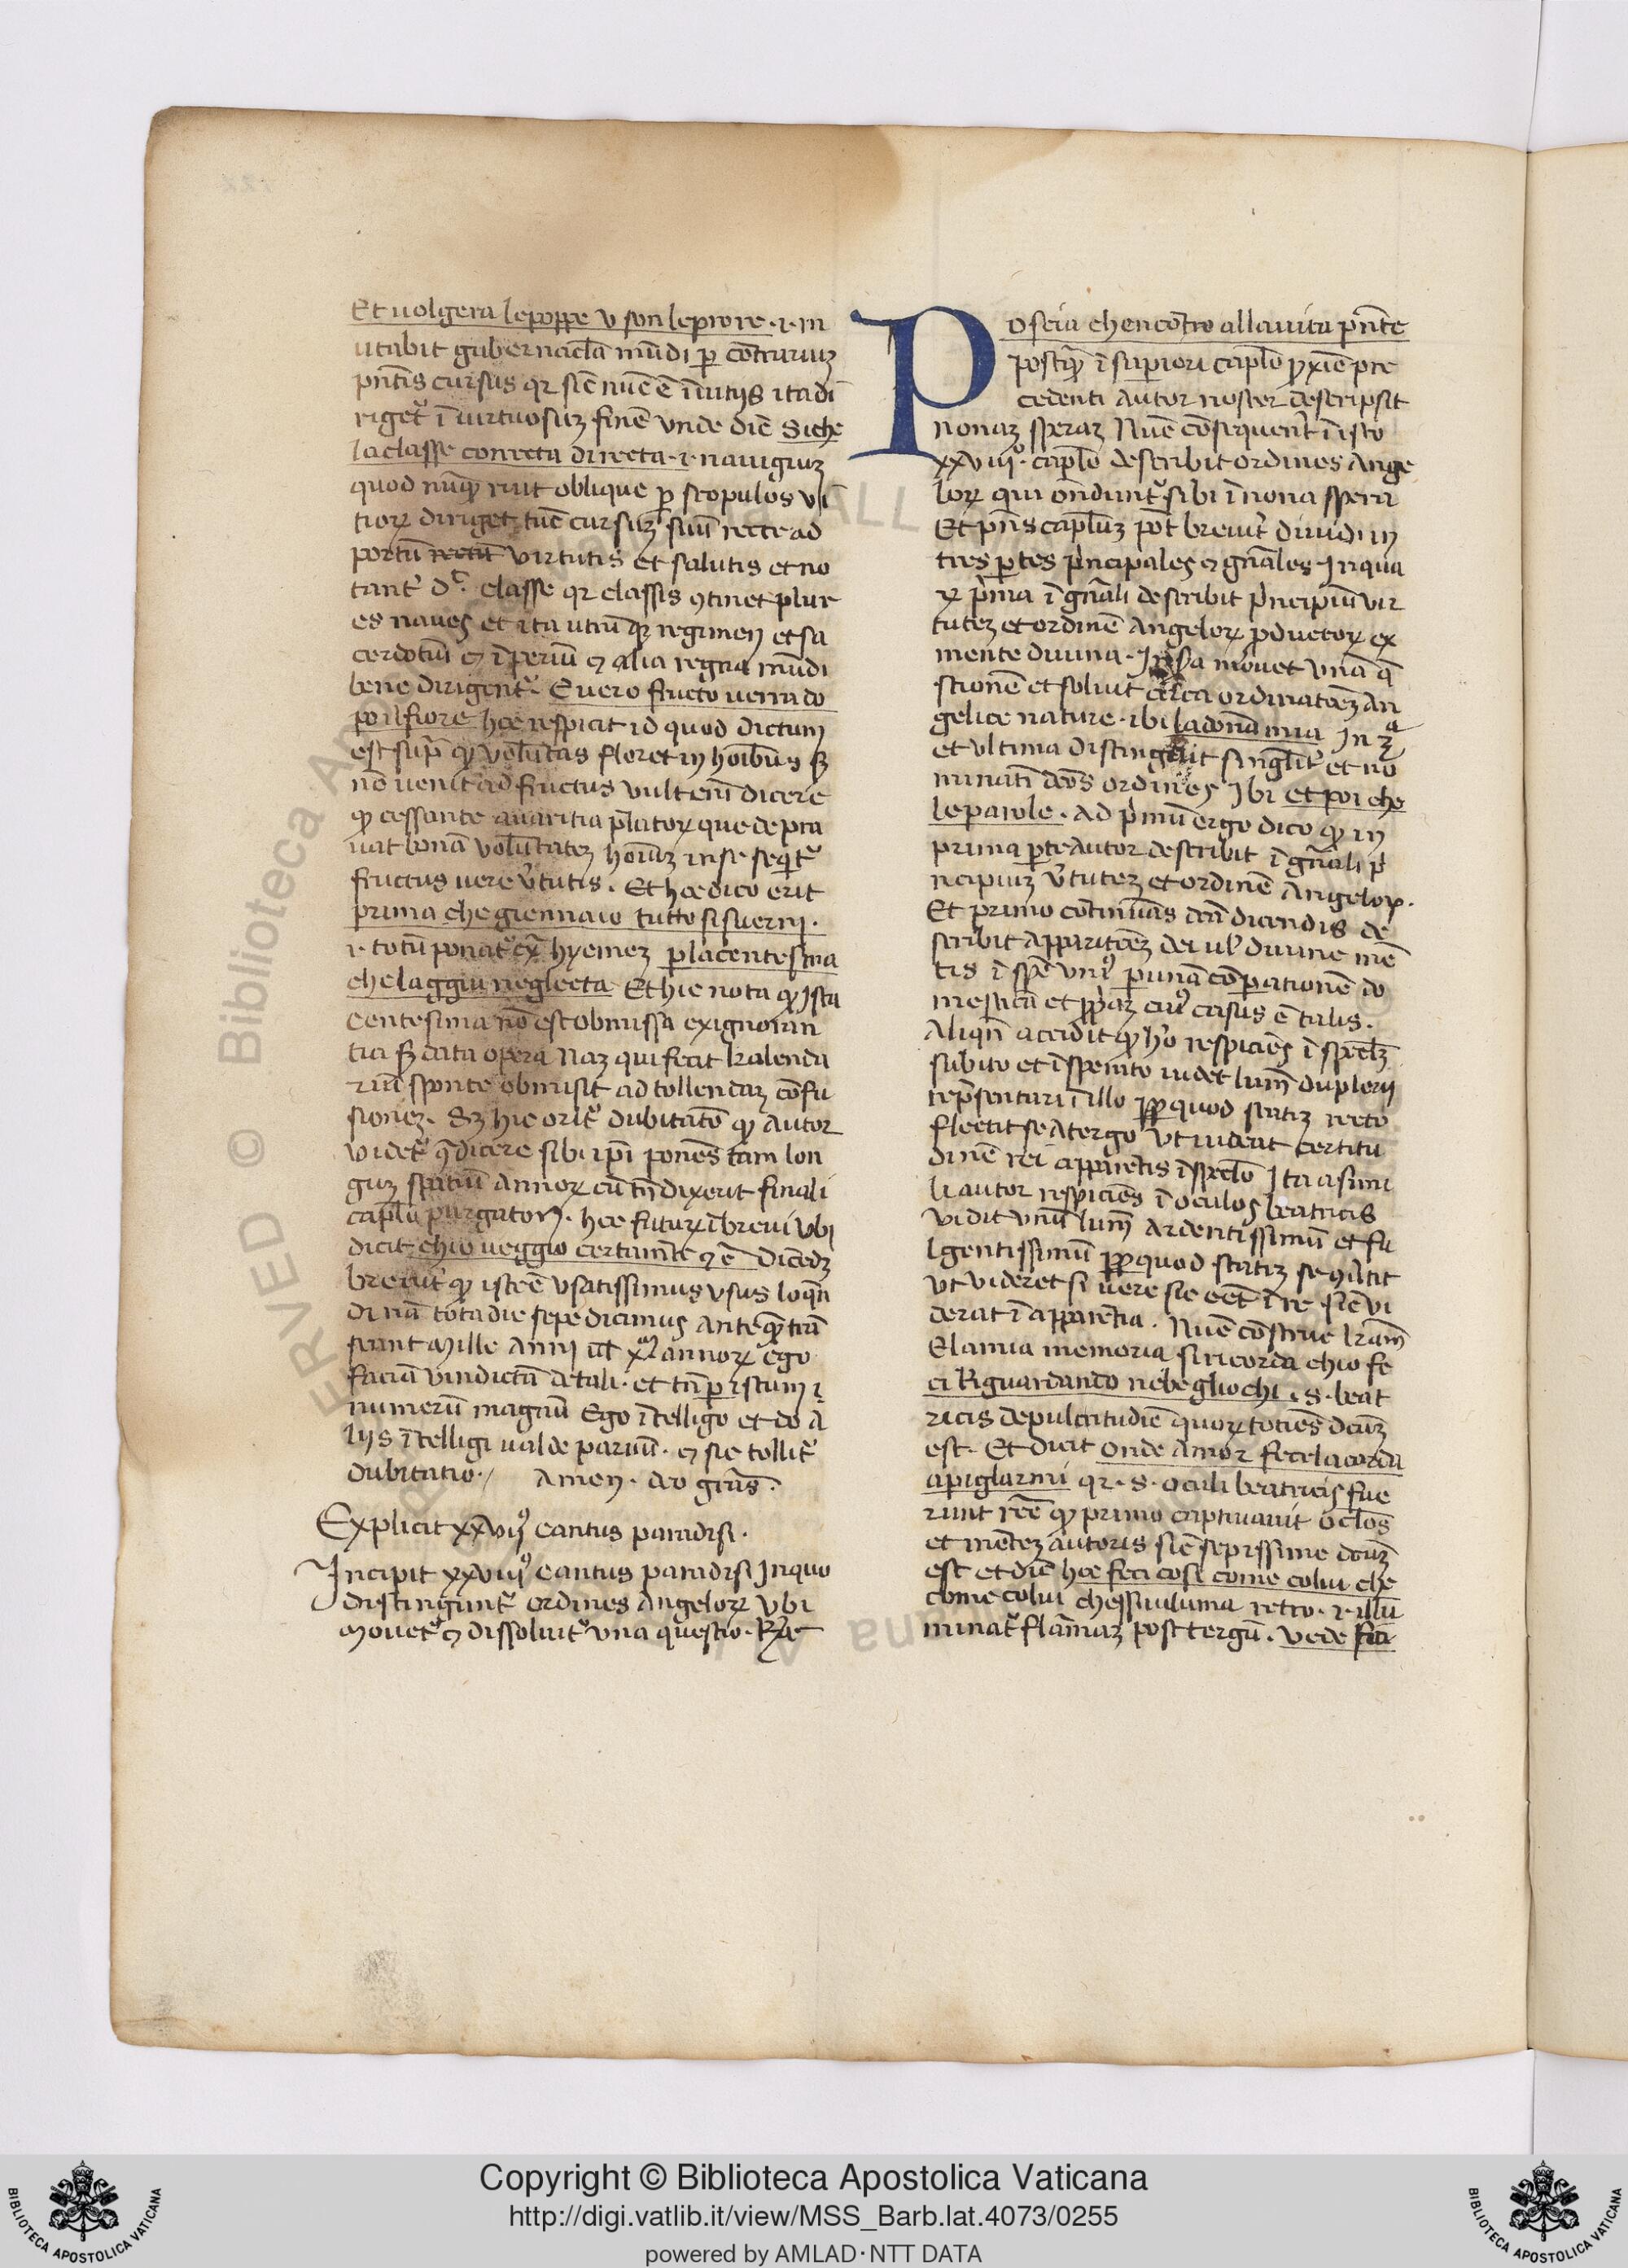 Et volgera le poppe v son le prore · i · m
utabit gubernacl̄a mūdi p̲ cōtrariuʒ
pn̄tis cursus qr sic̄ nūc ē ī vitijs ita di
riget᷑ ī virtuosuʒ finē vnde dic̄ si che
la classe correra directa · i · nauigiuʒ
quod nūqʒ ruit oblique p̲ scopulos vi
tioꝝ diriget tūc cursuʒ suū recte ad
portū rectū virtutis et salutis et no
tant᷑ classe qr classis ꝯtinet plur
es naues et ita utrūqʒ regimen et sa
cerdotiū ⁊ īperiū ⁊ alia regna mūdi
bene dirigent᷑ · E vero fructo verra do
po il fiore hoc respicit id quod dictum
est sup̄ ꝙ volūtas floret in hoībus sʒ
nō uenit ad fructus vult enī dicere
ꝙ cessante auaritia p̄latoꝝ que depra
uat bonā volūtateʒ hoīuʒ in se seqit᷑
fructus uere v̓tutis · Et hoc dico erit
prima che giennaio tutto si suernj ·
i · totū ponat᷑ ex̄ hyemeʒ per la centesma
che laggiu neglecta Et hic nota ꝙ ista
centesima nō est obmissa ex ignoran
tia sʒ data opera Naʒ qui fecit kalenda
riū sponte obmisit ad tollendaʒ cōfu
sioneʒ · Sʒ hic orit᷑ dubitatō ꝙ autor
videt᷑ ꝯ̄dicere sibi ipsī ponēs tam lon
guʒ spatiū annoꝝ cū tn̄ dixerit finali
capl̄o purgatorij · hec futuꝝ ī brevi vbi
dicit chio veggio certam̄te ⁊c̄ dicēdʒ
breuit᷑ ꝙ iste ē vsatissimus vsus loqn̄
di nā tota die sepe dicimus anteqʒ trā
seant mille anni ul̄ xᵐ annoꝝ ego
faciā vindictā de tali · et tn̄ p̲ istum
numerū magnū Ego ītelligo et do a
lijs ītelligi valde paruū · ⁊ sic tollit᷑
dubitatio · / Amen · deo gr̄as ·
Explicit xxvijº cantus paradisi ·
Incipit xxviijº cantus paradisi In quo
distingunt᷑ ordines Angeloꝝ vbi
mouet᷑ ⁊ dissoluit᷑ vna questio ·
Poscia chencontro alla uita pn̄te
postqʒ ī superiori capl̄o ꝓxīe pre
cedenti autor noster descripsit
nonaʒ speraʒ Nūc cōsequent᷑ ī isto
xxviijº · capl̄o describit ordines ange
loꝝ qui on̄dunt᷑ sibi ī nona spera
Et pn̄s capl̄uʒ pōt breuit᷑ diuidi in
tres p̲tes p̓ncipales ⁊ gn̄ales · In qua
ꝝ p̓ma ī gn̄ali describit p̓ncipiū vir
tuteʒ et ordinē Angeloꝝ ꝓductoꝝ ex
mente diuina · In sā mouet vnā q̄
stionē et soluit circa ordinatōeʒ an
gelice nature · ibi la don̄a mia In 3ᵃ
et vltima distinguit singl̄it᷑ et no
minatī dc̄os ordines Ibi et poi che
le parole · Ad p̓mū ergo dico ꝙ in
prima p̲te autor describit ī gn̄ali p̓
ncipiuʒ v̓tuteʒ et ordinē Angeloꝝ ·
Et primo cōtinuās dcā dicendis de
scribit apparitōeʒ dei ul̄ diuine mē
tis ī spē vniꝰ p̲ unā cōparationē do
mesticā et ꝓp̓aʒ cuiꝰ casus ē talis ·
Aliqn̄ accidit ꝙ hō respiciēs ī specl̄ʒ
subito et īsperato uidet lum̄ duplerij
rep̓sentari ī illo ꝓp̲ quod statiʒ recto
flectit se a tergo vt uideat certitu
dinē rei apparētis ī specl̄o Ita a simi
li autor respiciēs ī oculos beatricis
vidit vnū lum̄ ardentissimū et fu
lgentissimū ꝓp̲ quod statiʒ se ꝯu̓tit
vt videret si vere sic eēt ī re sic̄ vi
derat ī apparētia · Nūc cōstrue lr̄am
E la mia memoria si ricorda chio fe
ci Riguardando ne be gliochi · s · beat
ricis de pulcritudīe quoꝝ toties dc̄uʒ
est · Et dicit onde amor fece la corda
a pigliarmi qr · s · oculi beatricis fue
runt rete ꝙ primo captivauit ocl̄os
et mēteʒ autoris sic̄ sepissime dc̄uʒ
est et dic̄ hoc feci cosi come colui che
come colui che si aluma retro · i · illū
minat᷑ flāmaʒ post tergū · vede
Copyright © Biblioteca Apostolica Vaticana
http://digi.vatlib.it/view/MSS_Barb.lat.4073/0255
powered by AMLAD·NTT DATA